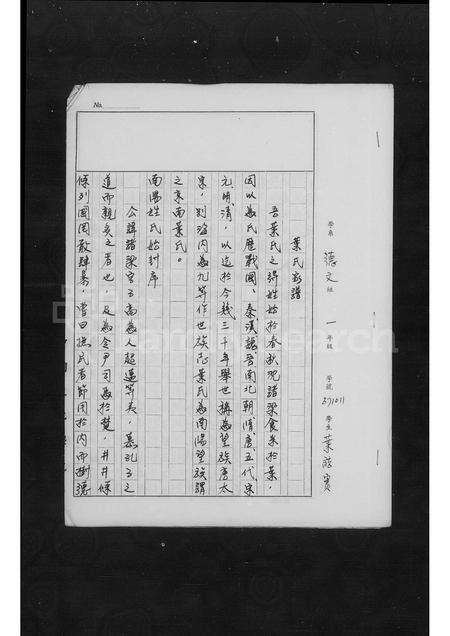 No.
學系 德文組 一年級 學號 371011 學生 葉
葉氏家譜
吾葉氏之得姓始於春秋沈諸梁食采於葉，
因以為氏歷戰國、秦漢魏晉南北朝隋唐五代宋
元明清，以迄於今幾三千年舉世稱為望族唐太
宗，別海內為九等作世族志葉氏為南陽望族謂
之京南葉氏。
南陽姓氏始封序
公諱諸梁字子高為人超邁等夷，慕孔子之
道而親炙之者也，及為令尹司馬於楚，井井條
條列國罔敢肆暴，嘗曰撫民者節用於內而樹德